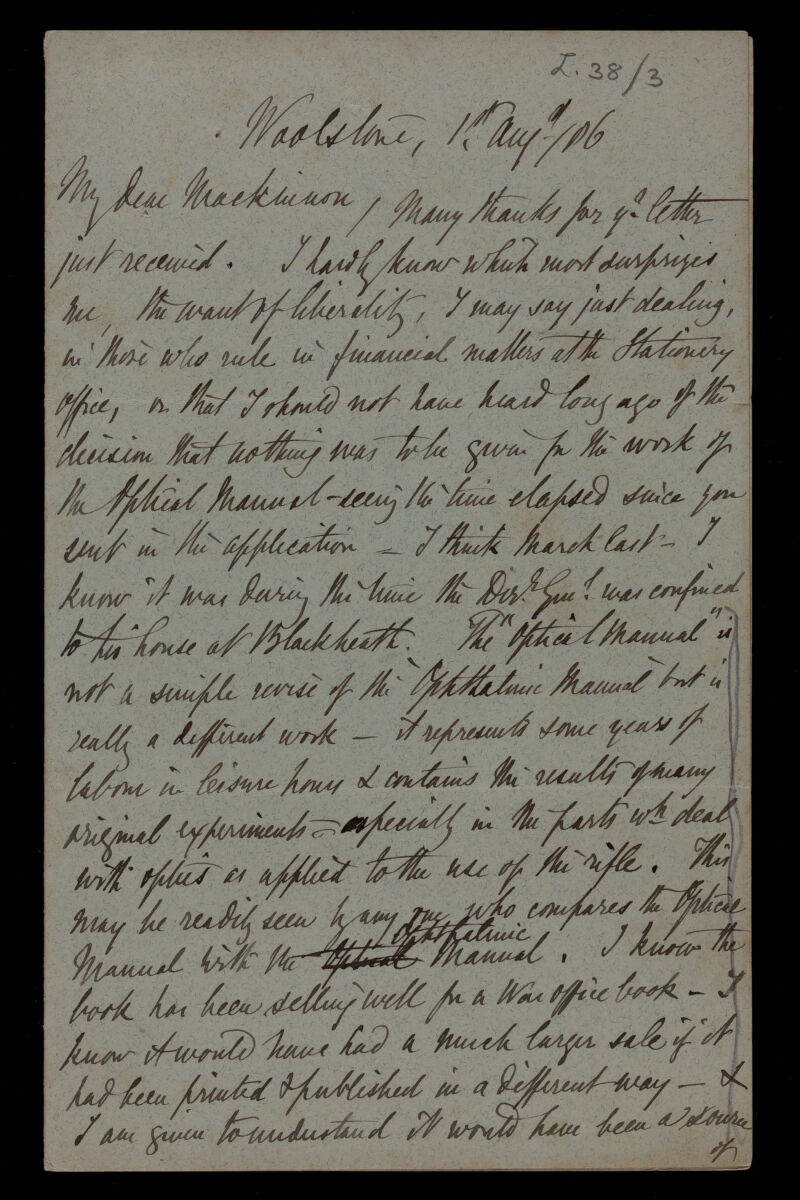 I. 38/3
Woolstone, 1st Augst/86
My dear Mackinnon / Many thanks for yr. letter
just received. I hardly know which most surprizes
me, the want of liberality, I may say just dealing,
in those who rule in financial matters at the Stationery
Office, or that I should not have heard long ago of the
decision that nothing was to be given for the work of
the Optical Manual - seeing the time elapsed since you
sent in the application - I think March last - I
know it was during the time the Dirr. Genl. was confined
to his house at Blackheath. The "Optical Manual" is
not a simple revise of the Ophthalmic Manual but is
really a different work - it represents some years of
labour in leisure hours & contains the results of many
original experiments - especially in the parts wh. deal
with optics as applied to the use of the rifle. This
may be readily seen by any one who compares the Optical
Manual with the Optical Ophthalmic Manual. I know the
book has been selling well for a War office book - I
know it would have had a much larger sale if it
had been printed & published in a different way - &
I am given to understand it would have been a source
of